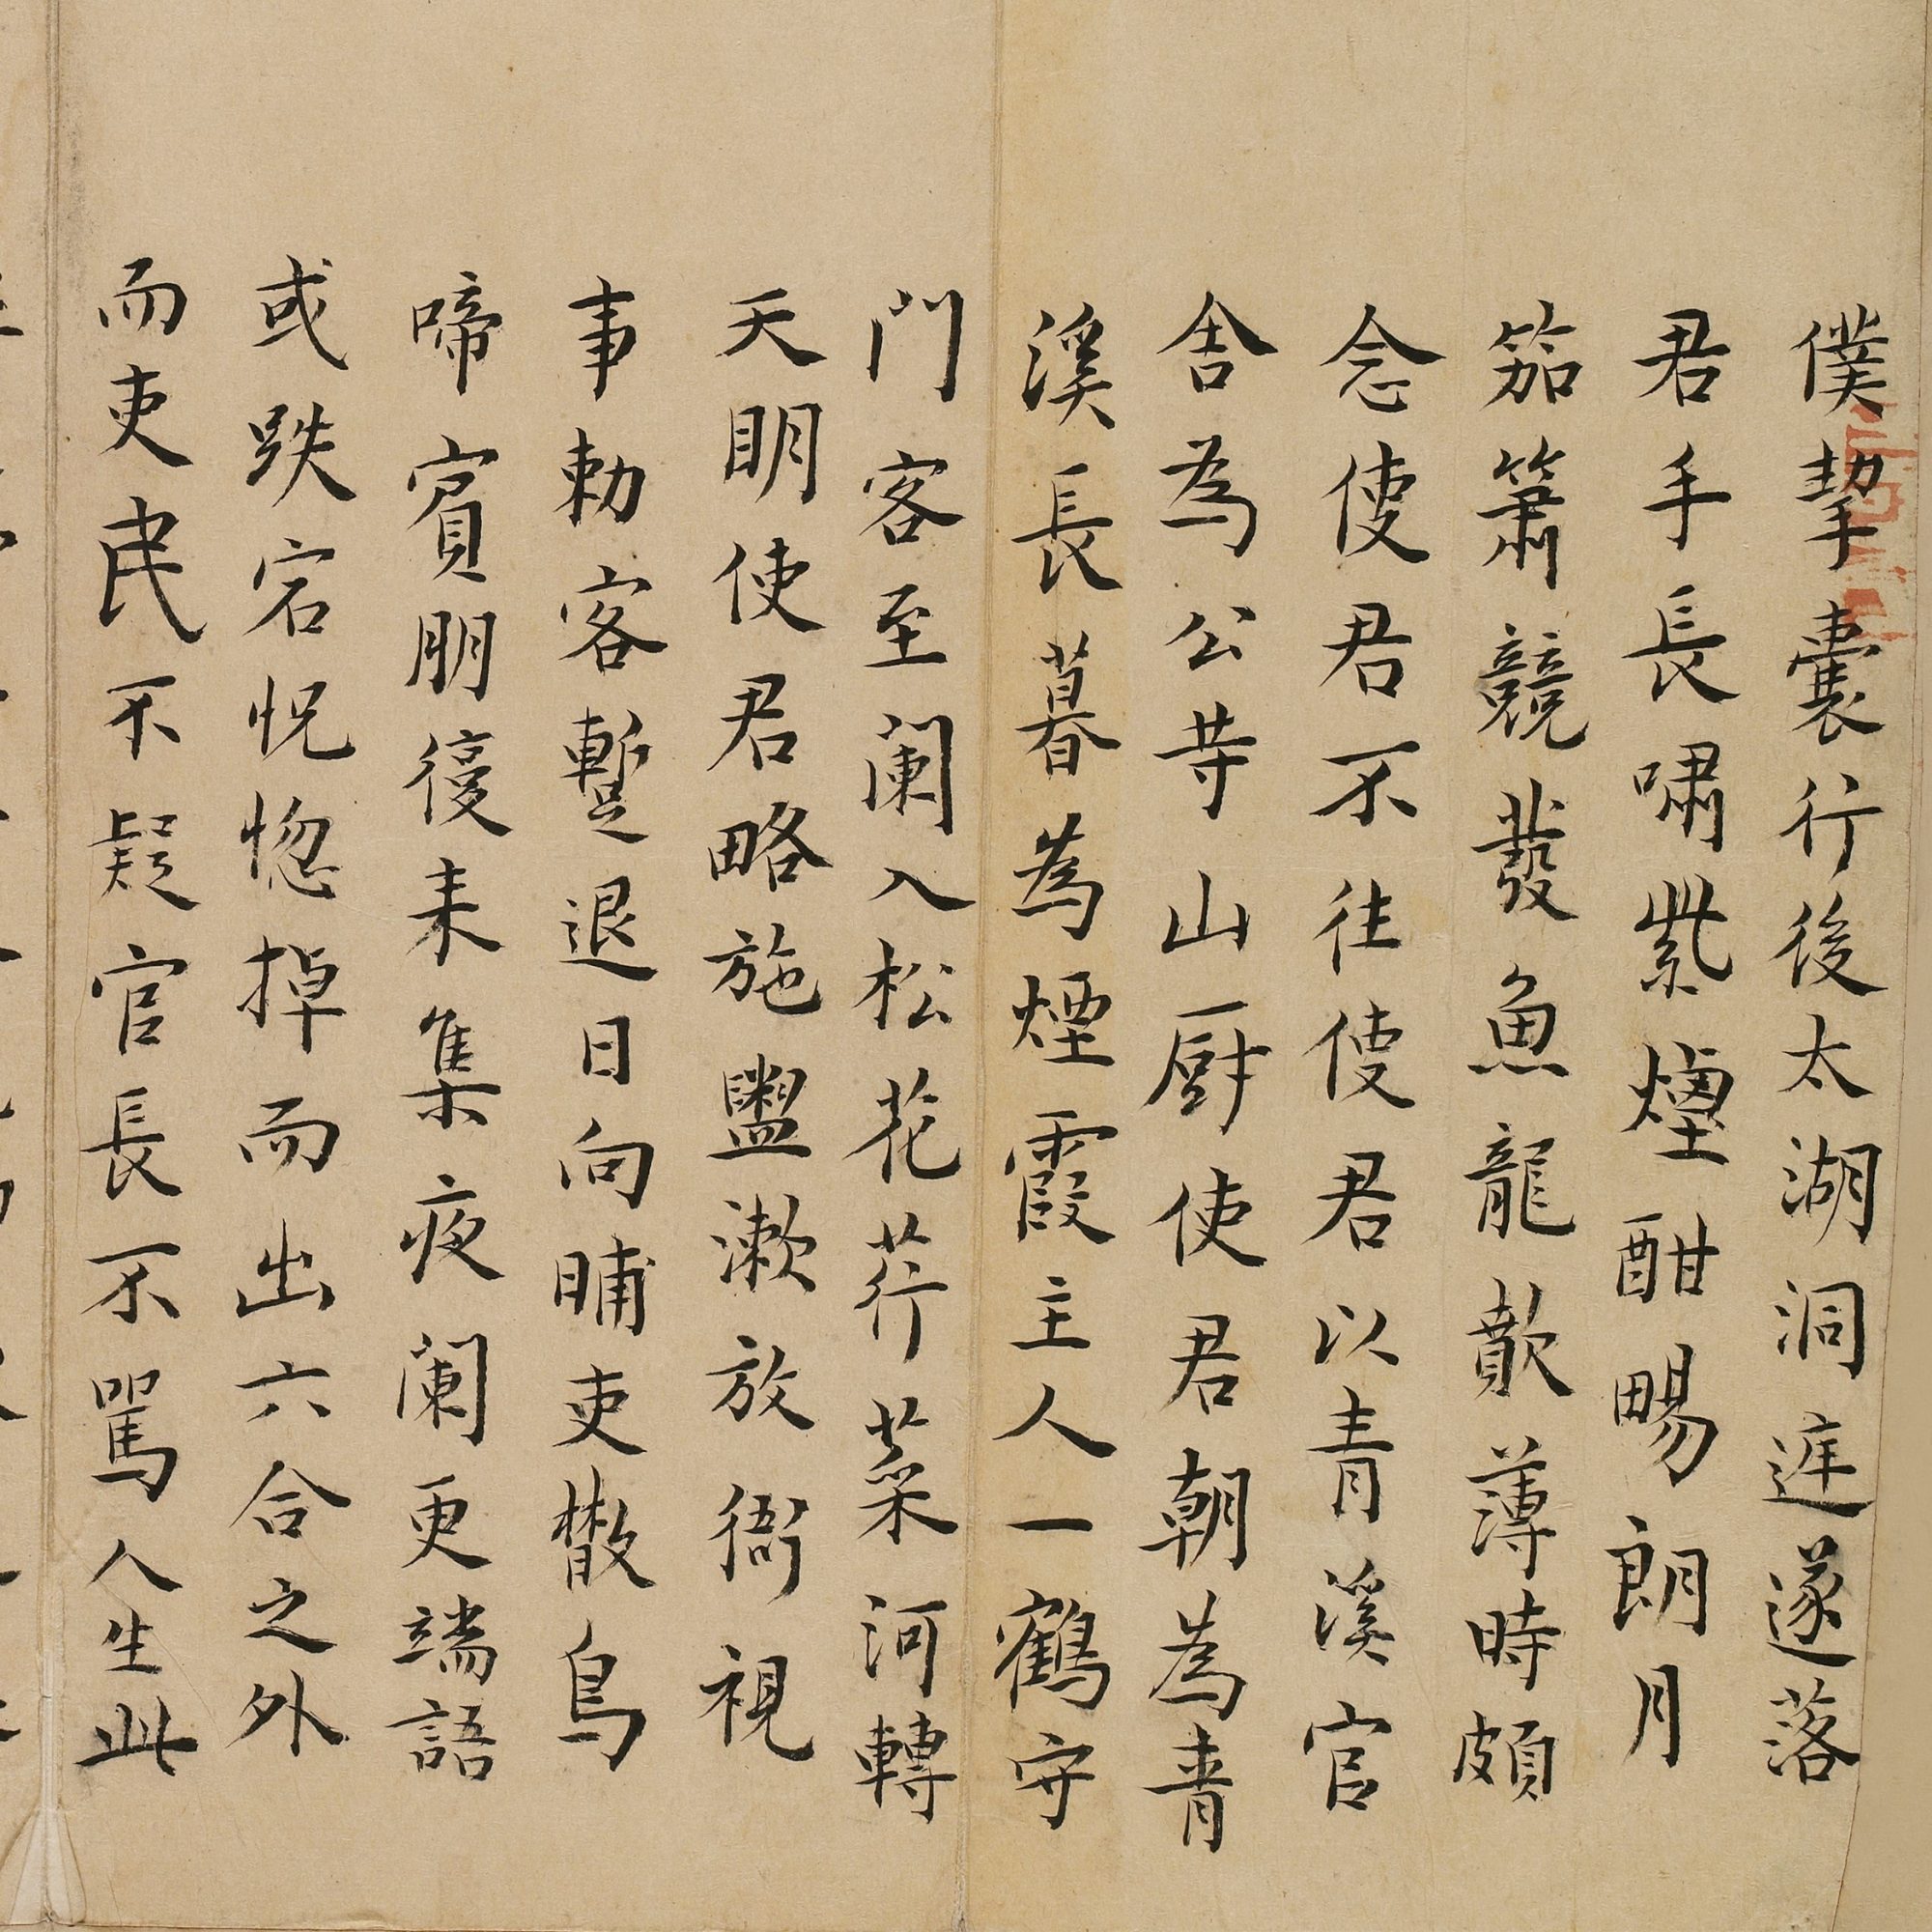 僕挈囊行後太湖洞庭遂落
君手長嘯紫煙酣暢朗月
笳簫競發魚龍歕薄時頗
念使君不往使君以青溪官
舍為公等山廚使君朝為青
溪長暮為煙霞主人一鶴守
門客至闌入松花荇菜河轉
天明使君略施盥漱放衙視
事勅客暫退日向晡吏散鳥
啼賓朋復來集夜闌更端語
或跌宕怳惚掉而出六合之外
而吏民不疑官長不罵人生此